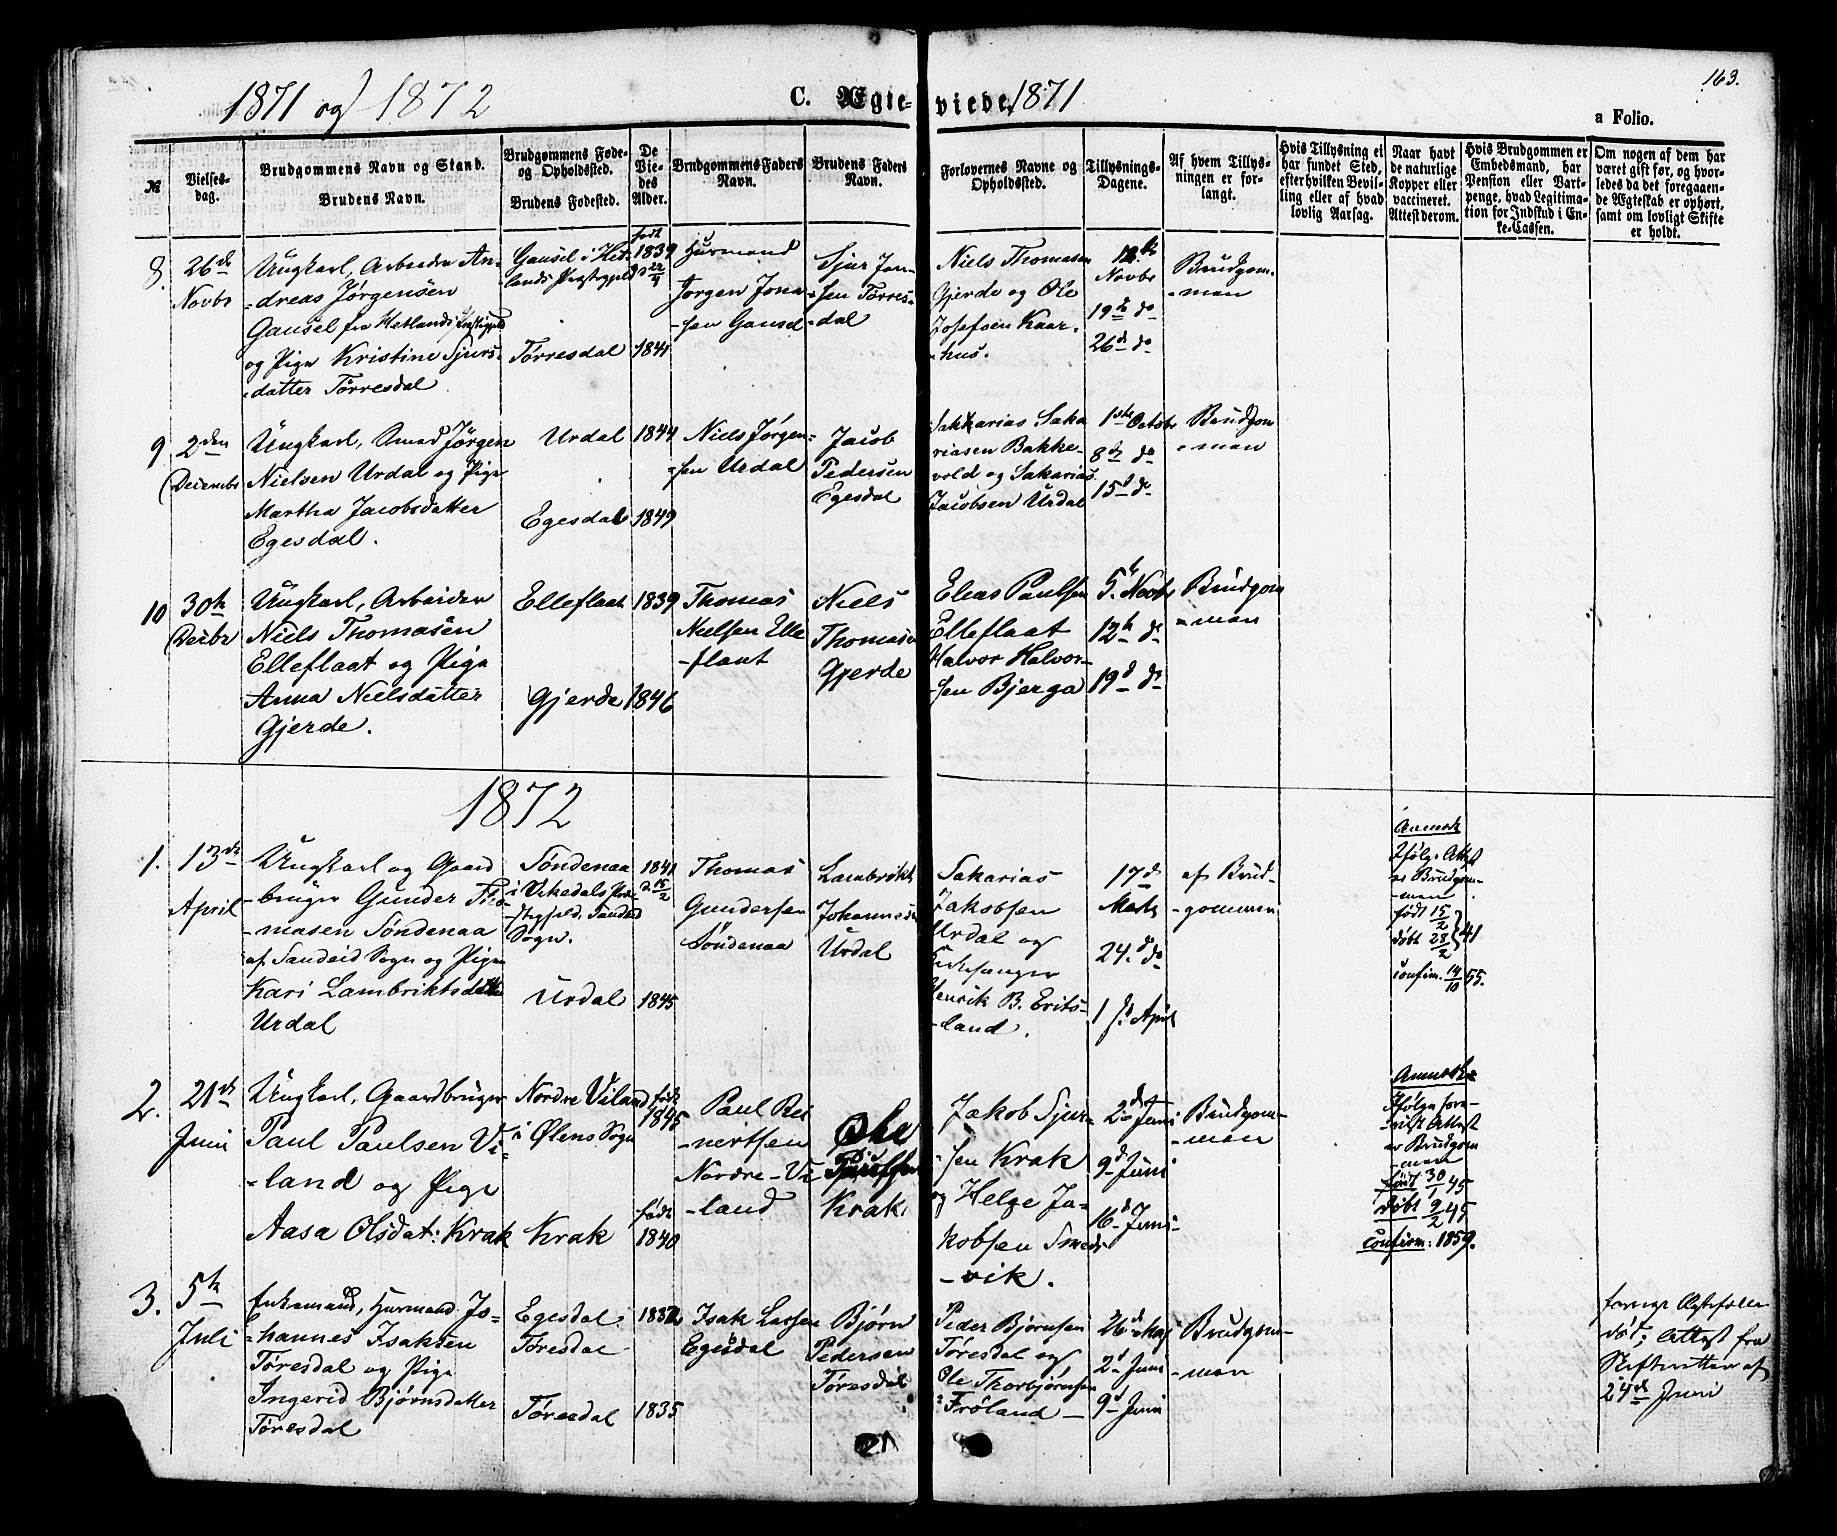 163.
1871 og 1872 C. Ægteviede, 1871 a Folio.
№
Vielses-
dag.
Brudgommens Navn og Stand.
Brudens Navn.
Brudgommens Føde-
og Opholdssted.
Brudens Fødested.
De
Vie-
des
Alder.
Brudgommens Faders
Navn.
Brudens Faders
Navn.
Forlovernes Navne og
Opholdssted.
Tillysnings-
Dagene.
Af hvem Tillys-
ningen er for-
langt.
Hvis Tillysning ei
har fundet Sted,
efter hvilken Bevil-
ling eller af hvad
lovlig Aarsag.
Naar havt
de naturlige
Kopper eller
vaccineret.
Attest derom.
Hvis Brudgommen er
Embedsmand, har
Pension eller Vart-
penge, hvad Legitima-
tion for Indskud i En-
ke-Cassen.
Om nogen af dem har
været gift før, og hvor-
ledes da det foregaaen-
de Ægteskab er ophørt,
samt om lovligt Skifte
er holdt.
8.
26de
Novbr
Ungkarl, Arbeider An-
-dreas Jørgensen
Gausel fra Hetlands Præstegjeld
og Pige Kristine Sjurs-
datter Tørresdal
Gausel i Het-
lands Præstgjeld
Tørresdal
født
1839
1841
Huusmand
Jørgen Jona
-sen Gausel
Sjur Jon-
-sen Tørres-
dal
Niels Thomasen
Gjerde og Ole
Josefsen Kaar-
-hus.
12te
Novbr
19de do
26d do
Brudgom-
-men
9
2den
Decembr
Ungkarl, Smed Jørgen
Nielsen Urdal og Pige
Martha Jacobsdatter
Egesdal.
Urdal
Egesdal
1844
1849
Niels Jørgen-
-sen Urdal
Jacob
Pedersen
Egesdal
Sakkarias Saka
riasen Bakke-
vold og Sakarias
Jacobsen Urdal
1ste Octobr
8de do
15d do
Brudgom
-men
10
30te
Decbr
Ungkarl, Arbeider
Niels Thomasen
Elleflaat og Pige
Anna Nielsdatter
Gjerde.
Elleflaat
Gjerde
1839
1846
Thomas
Nielsen Elle
-flaat
Niels
Thomasen
Gjerde
Elias Paulsen
Elleflaat
Halvor Halvor-
-sen Bjerga
5te Novbr
12te do
19d do
Brudgom
-men
1872
1.
13de
April
Ungkarl og Gaard
-bruger Gunder Tho-
-masen Søndenaa
af Sandeid Sogn og Pige
Kari Lambriktsdatter
Urdal
Søndenaa
i Vikedals Præ-
-stegjeld, Sandeid
Sogn.
Urdal
1841
d. 15/2
1845
Thomas
Gundersen
Søndenaa
Lambrikt
Johannesen
Urdal
Sakarias
Jakobsen
Urdal og
Kirkesanger
Henrik B. Erits-
-land.
17d
Marts
24. do
1ste April
af Brud-
-gommen
Anmærk
Ifølge Attest
er Brudgom-
-men
født 15/2
døbt 28/2 } 41
confirm. 14/10 55.
2.
21de
Juni
Ungkarl, Gaardbruger
Paul Paulsen Vi-
-land og Pige
Aasa Olsdat: Krak
Nordre Viland
i Ølens Sogn
Krak
født
1845
født
1840
Paul Rei
-nertsen
Nordre-Vi
-land
Ole
Krak
Jakob Sjur-
-sen Krak
og Helge Ja-
kobsen Smeds
-vik.
2den Juni
9d Juni
16d Juni
Brudgom-
-men
Anmærk
Ifølge fore-
-vist Attest
er Brudgom
-men
født 30/1 45
døbt 9/2 45
confirm: 1859.
3.
5te
Juli
Enkemand, Huusmand Jo-
-hannes Isaksen
Tøresdal og Pige
Ingerid Bjørnsdatter
Tøresdal
Egesdal
Tøresdal
Tøresdal
1835
Isak Larsen
Egesdal
Bjørn
Pedersen
Tøresdal
Peder Bjørnsen
Tøresdal og
Ole Thorbjørnsen
Frøland
26d Maj
2d Juni
9d Juni
Brudgom-
-men
forrige Ægtefælle
død; Attest fra
Skifteretten af
24de Juni